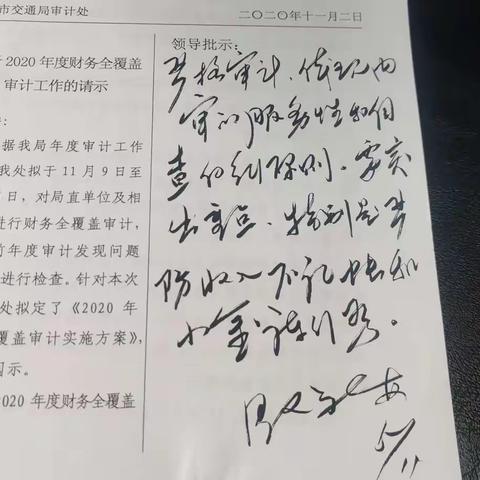 市交通局审计处
二〇二〇年十一月二日
2020年度财务全覆盖
审计工作的请示
据我局年度审计工作
我处拟于11月9日至
日，对局直单位及相
进行财务全覆盖审计，
前年度审计发现问题
进行检查。针对本次
处拟定了《2020年
覆盖审计实施方案》，
示。
2020年度财务全覆盖
领导批示：
严格审计、体现内
审的服务性和
查的纠原则、要突
出重点、特别是严
防收入不记帐和
小金库
5/11